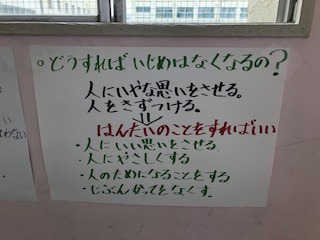 。どうすれば いじめは なくなるの?
人にいやな思いをさせる。
人をきずつける。
⇓
はんたいのことをすればいい
・人にいい思いをさせる
・人にやさしくする
・人のためになることをする
・じぶんかってをなくす。